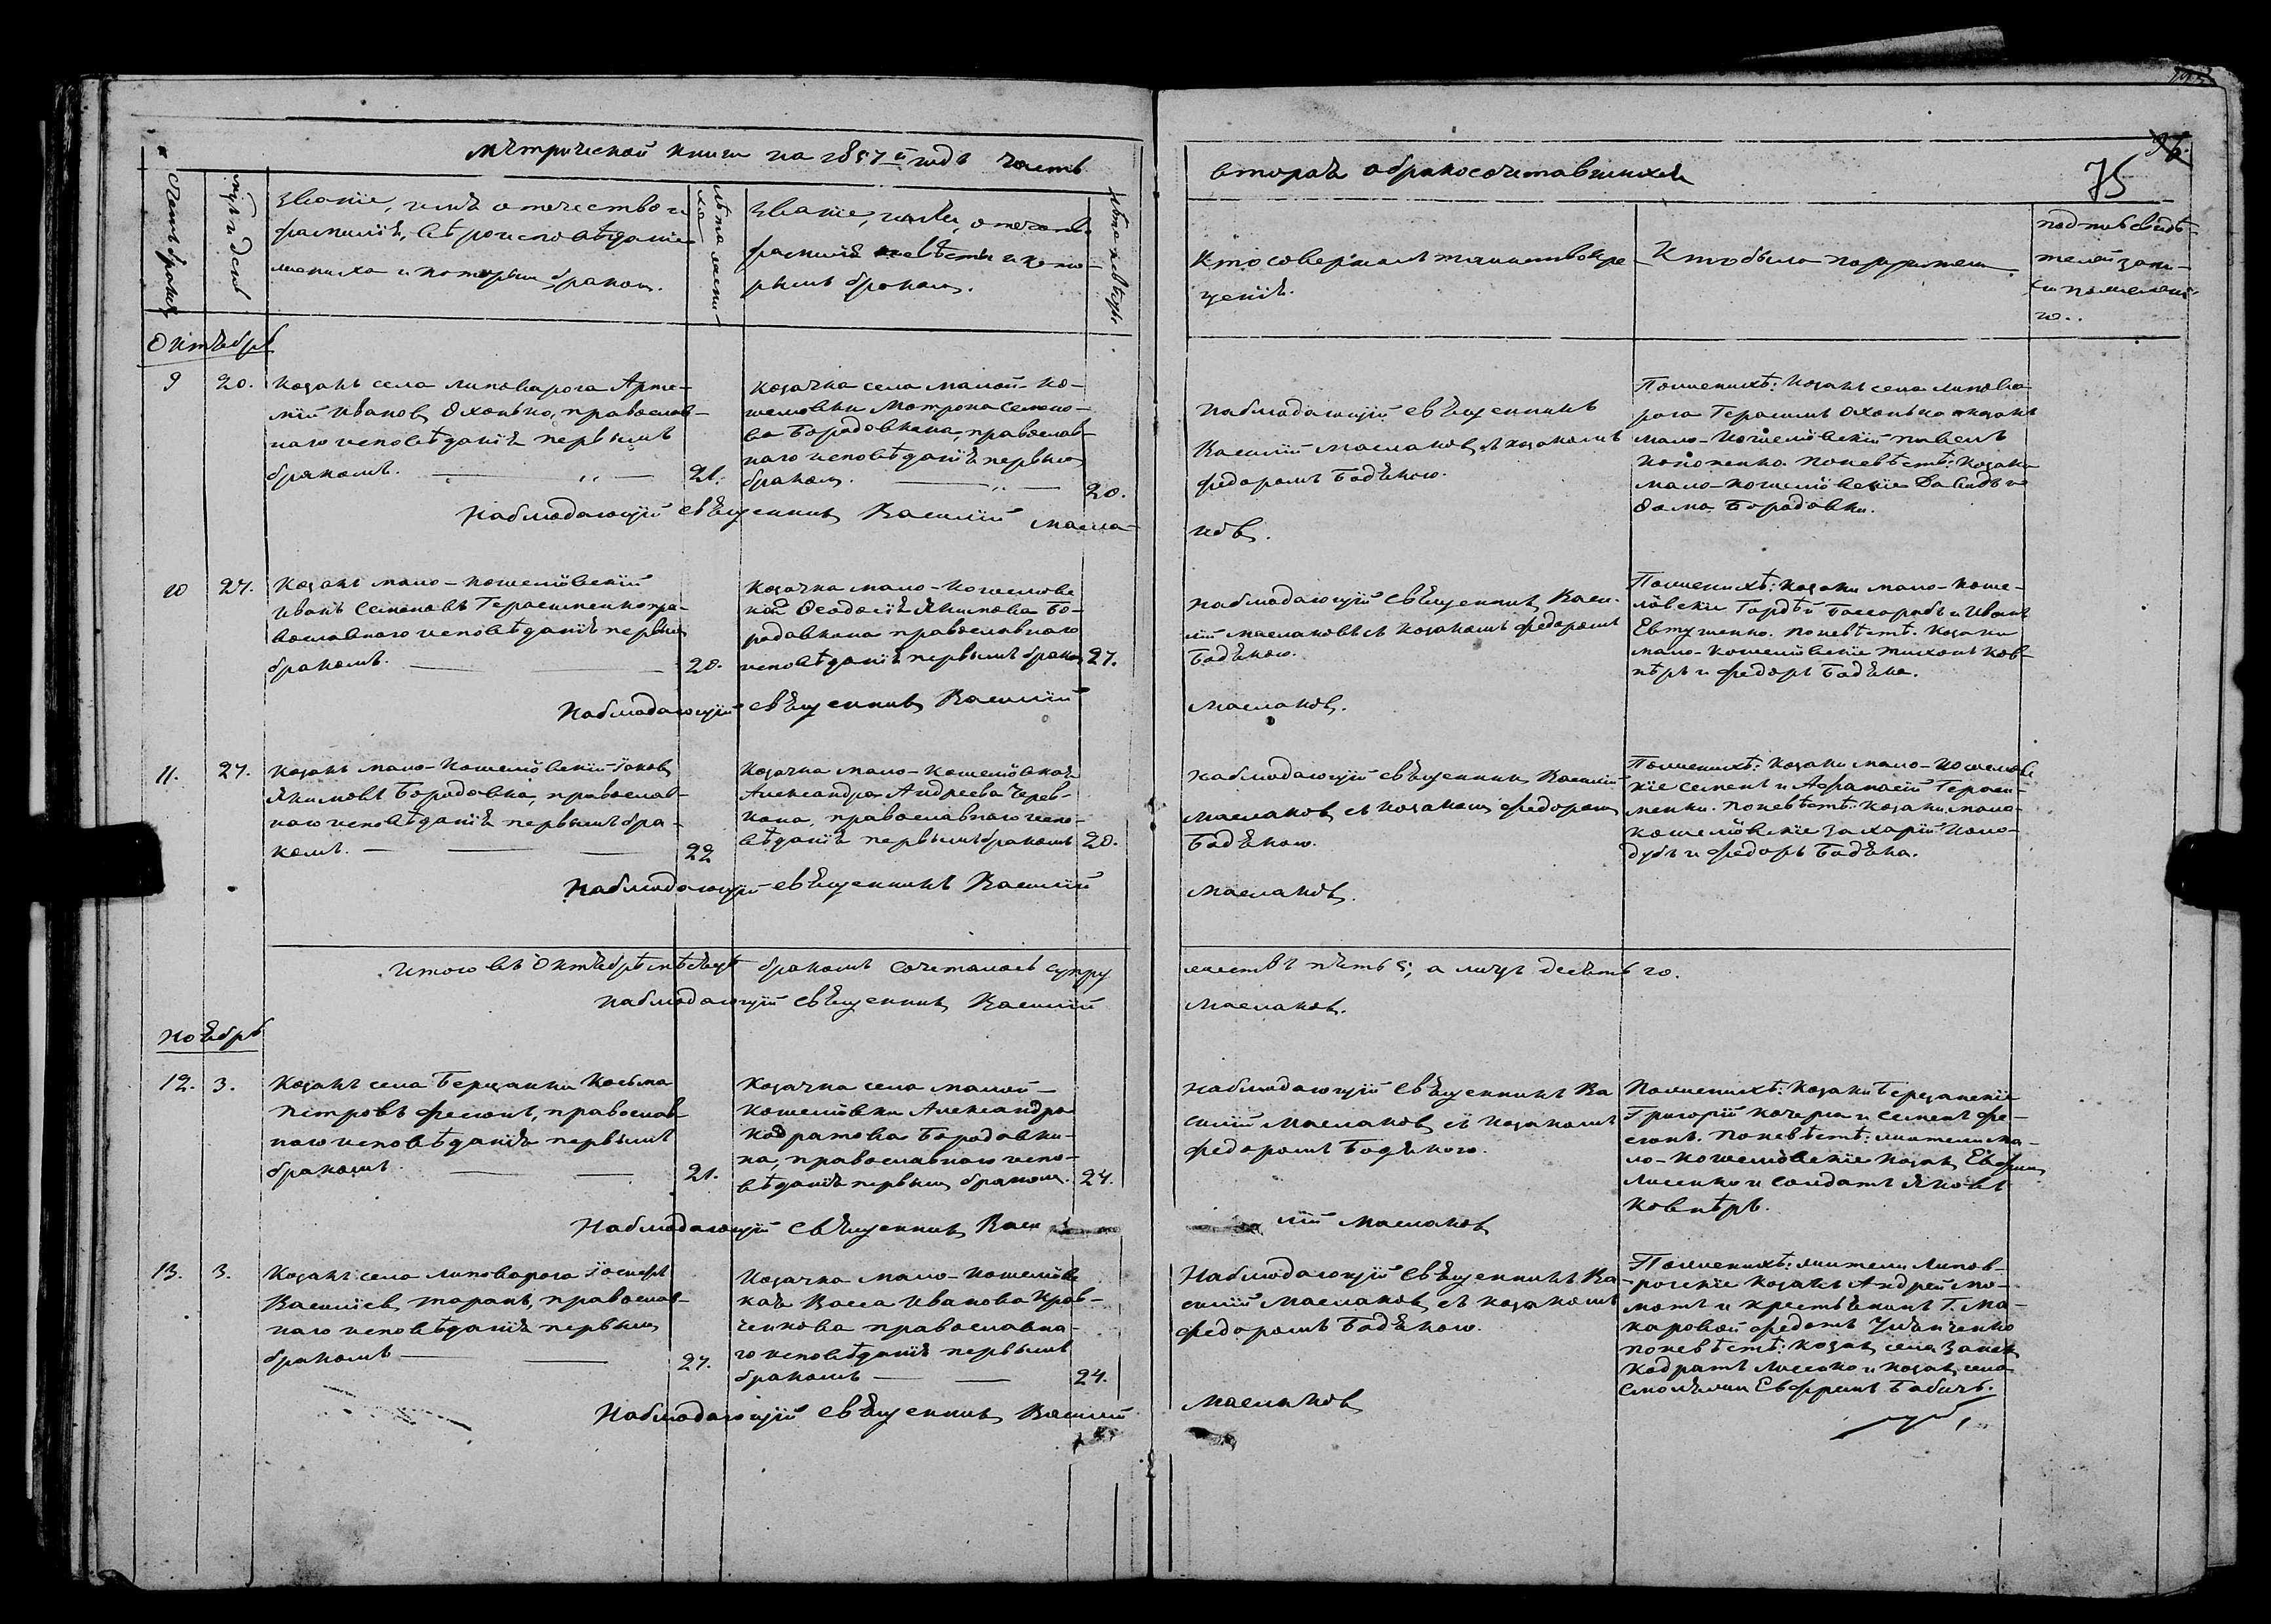 Метрической книги на 1857й годъ часть
вторая о бракосочетавшихся
75
Счетъ браковъ
Мѣсяцъ и день
Званіе, имя отечество и
фамилія, вѣроисповѣданіе
жениха и которым браком.
Лѣта жениха
Званіе, имя, отечество
фамилія невѣсты и кото-
рымъ браком.
Лѣта невѣсты
Кто совершалъ таинство кре
щенія.
Кто были поручители
подпись свидѣ-
телей запи-
си по желанію
Октябрь
9 20. Козакъ села Липоварога Арте-
мій Иванов Охонько, православ-
наго исповѣданія первымъ
бракомъ. 21.
Козачка села Малой-Ко-
шелевки Мотрона Семено-
ва Бородавкина, православ-
наго исповѣданія первым
браком. 20.
Наблюдающій священникъ
Василій Маслаков съ козакомъ
Федоромъ Бодякою.
По женихѣ: козакъ села Липова
рога Герасимъ Охонько и козакъ
мало-кошелёвскій Павелъ
Кононенко. По невѣстѣ: козаки
мало-кошелёвскіе Давидъ и
Фома Бородавки.
Наблюдающій священник Василій Масла-
ков.
10 27. Козакъ мало-кошелёвскій
Иванъ Семеновъ Герасименко пра-
вославнаго исповѣданія первым
бракомъ. 20.
Козачка мало-кошелевс
кая Феодосія Якимова Бо-
родавкина православнаго
исповѣданія первымъ браком 27.
Наблюдающій священник Васи-
лій Маслаковъ съ козакомъ Федоромъ
Бодякою.
По женихѣ: козаки мало-коше-
лёвскіе Гордѣй Бассарабъ и Иванъ
Евтушенко. По невѣстѣ. козаки
мало-кошелёвскіе Тихонъ Ков-
нѣръ и Федоръ Бодяка.
Наблюдающій священник Василій
Маслаков.
11. 27. Козакъ мало-кошелёвскій Іаков
Якимовъ Бородавка, православ-
наго исповѣданія первымъ бра-
комъ. 22
Козачка мало-кошелёвская
Александра Андреева Черев-
кова, православнаго испо-
вѣданія первымъ бракомъ 20.
Наблюдающій священник Василій
Маслаков съ козаком Федором
Бодякою.
По женихѣ: козаки мало-кошелевс
кіе Семенъ и Афанасій Гераси-
менки. По невѣстѣ: козаки мало-
кошелёвскіе Захарій Коло-
дубъ и Федоръ Бодяка.
Наблюдающій священникъ Василій
Маслаков.
Итого въ Октябрѣ мѣсяцѣ бракомъ сочеталось супру
жествъ пять 5; а лицъ десять 10.
Наблюдающій священник Василій
Маслаков.
Ноябрь
12. 3. Козакъ села Березанки Косьма
Петровъ Фесюнъ, православ
наго исповѣданія первымъ
бракомъ. 21.
Козачка села Малой-
Кошелёвки Александра
Кодратова Бородавки-
на, православнаго испо-
вѣданія первым браком. 24.
Наблюдающій священникъ Ва
силій Маслаков съ козакомъ
Федоромъ Бодякою.
По женихѣ: козаки Березанскіе
Григорій Кочерга и Семенъ Фе-
сюнъ. По невѣстѣ: жители ма-
ло-кошелёвскіе козак Ефрем
Лисенко и солдатъ Яковъ
Ковнѣръ.
Наблюдающій священник Васи
лій Маслаков
13. 3. Козакъ села Липоварога Іосифъ
Василіев Таранъ, православ-
наго исповѣданія первым
бракомъ 27.
Козачка мало-кошелёвс
кая Васса Иванова Крав-
ченкова православна-
го исповѣданія первымъ
бракомъ 24.
Наблюдающій священникъ Ва-
силій Маслаков съ козакомъ
Федоромъ Бодякою.
По женихѣ: жители Липов-
рогскіе козакъ Андрей Мо-
мотъ и крестьянинъ Г. Ма-
каровой Федотъ
По невѣстѣ: козак села
Кодратъ Лисенко и козак села
Смоляжи Ефремъ Бабичъ.
Наблюдающій священник Василій
Маслаков